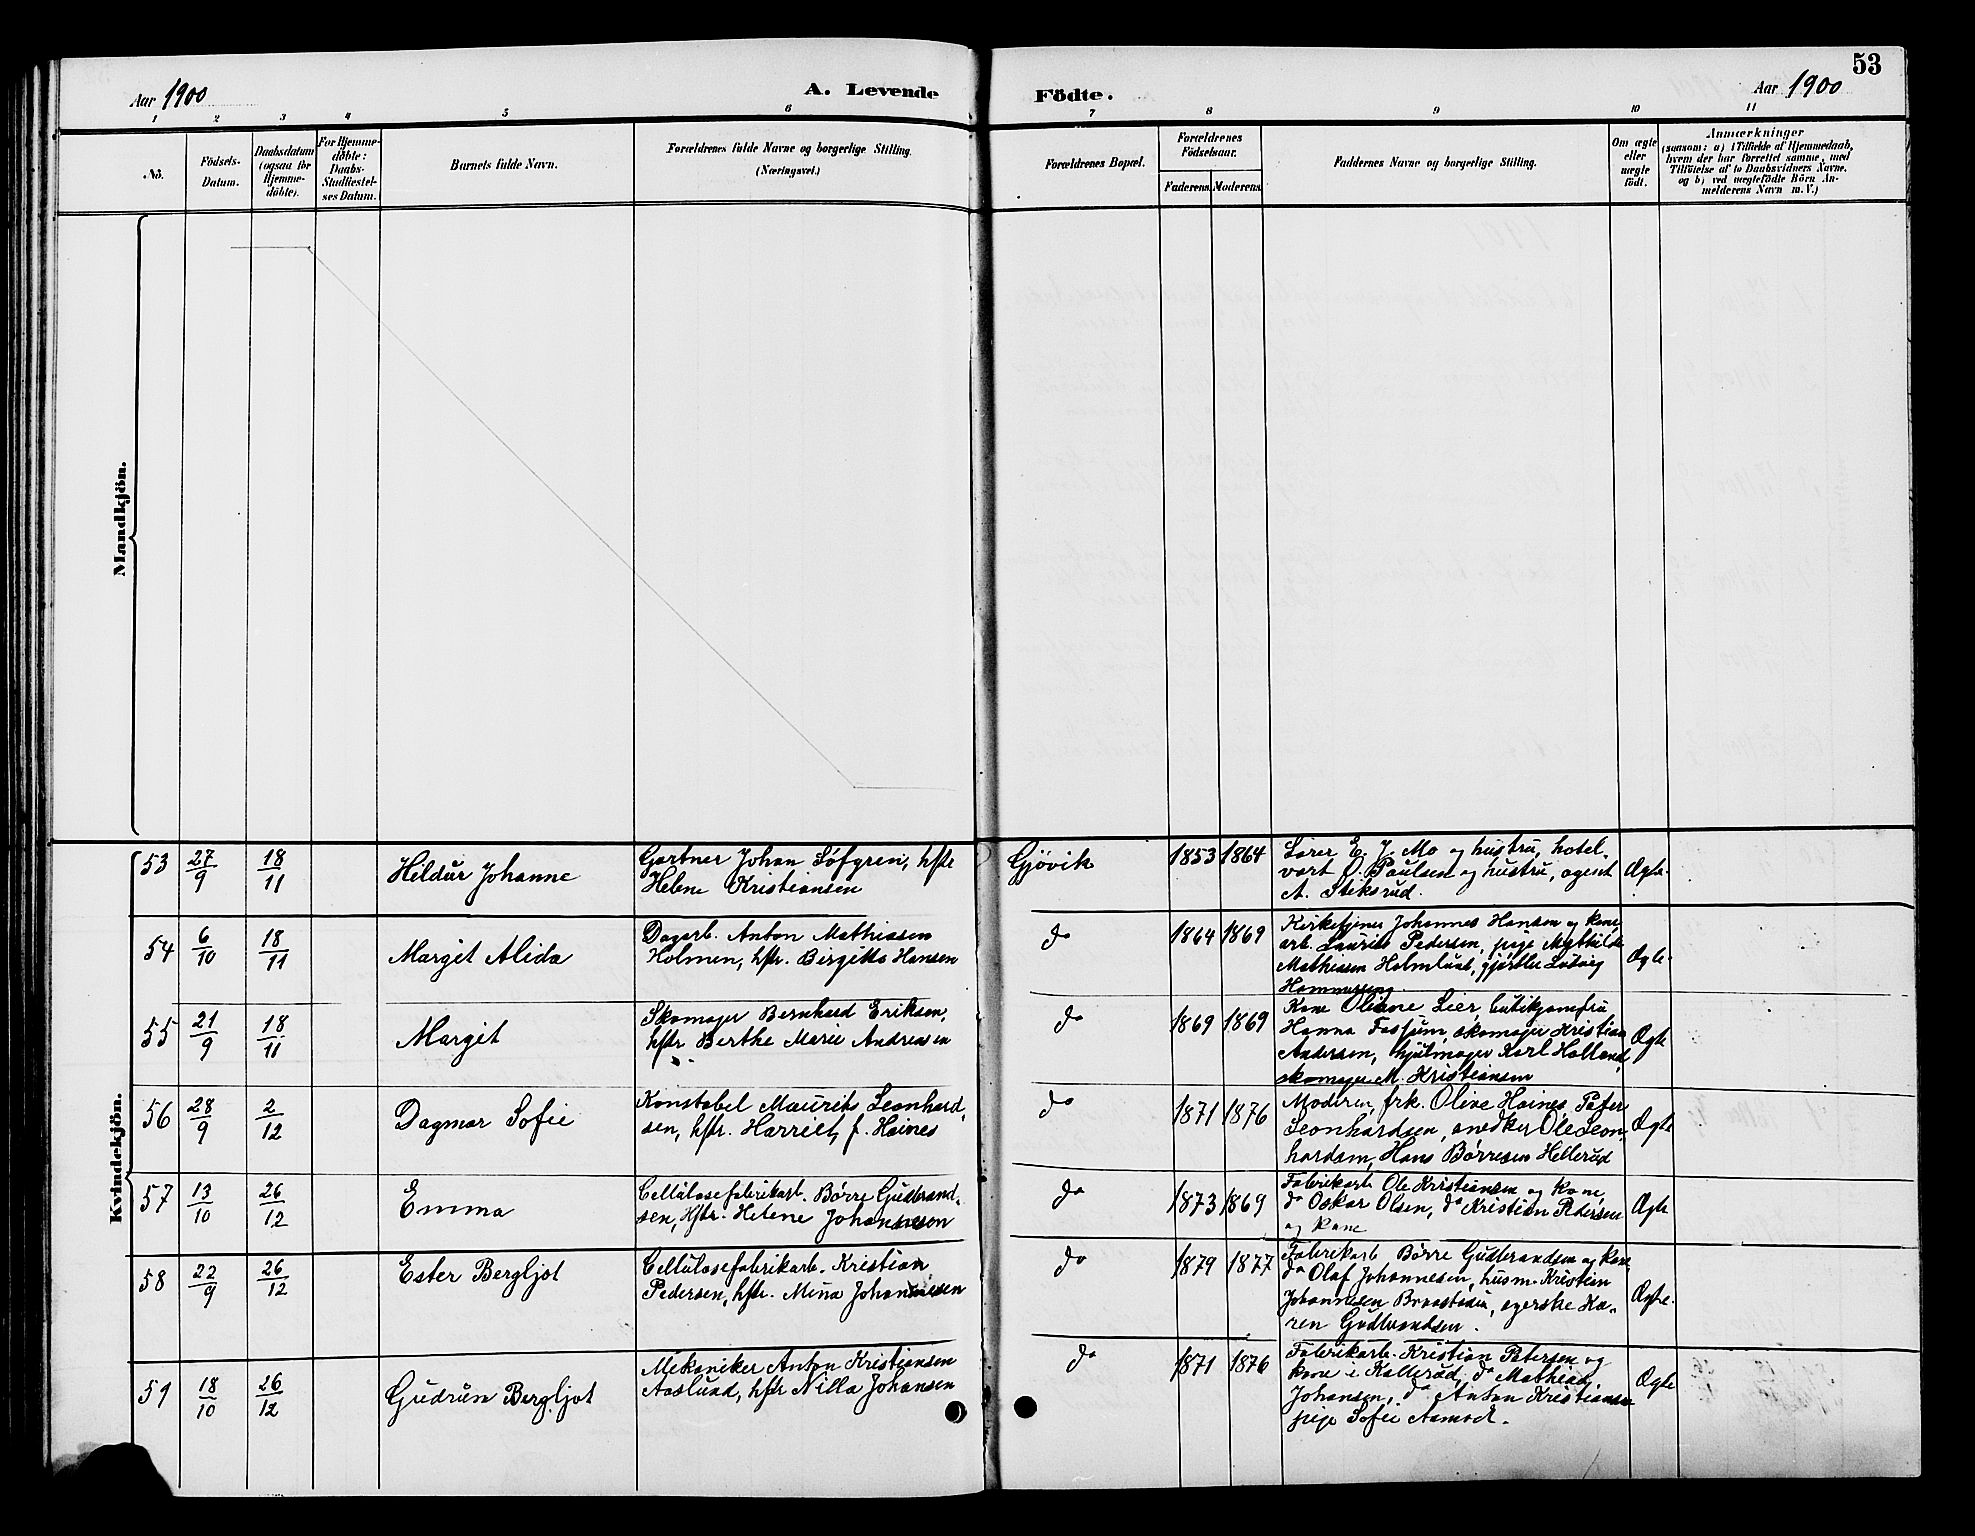 53
Aar 1900
A. Levende Födte.
Aar 1900
1 2 3 4 5 6 7 8 9 10 11
No.
Födsels-
Datum.
Daabsdatum
(ogsaa for
Hjemme-
döbte).
For Hjemme-
döbte:
Daabs-
Stadfæstel-
ses Datum.
Barnets fulde Navn.
Forældrenes fulde Navne og borgerlige Stilling.
(Næringsvei.)
Forældrenes Bopæl.
Forældrenes
Födselsaar.
Faderens.
Moderens.
Faddernes Navne og borgerlige Stilling.
Om ægte
eller
uægte
födt.
Anmærkninger
(saasom: a) i Tilfælde af Hjemmedaab,
hvem der har forrettet samme, med
Tilföielse af to Daabsvidners Navne.
og b) ved uægtefödte Börn An-
melderens Navn m. V.)
Mandkjön.
Kvindekjön.
53 27/9 18/11 Hildur Johanne
Gartner Johan Löfgren, hstr
Helene Kristiansen
Gjövik 1853 1864
Lærer E. J. Mo og hustru, hotel-
vært O. Paulsen og hustru, agent
A. Steksrud.
Ægte.
54 6/10 18/11 Margit Alida
Dagarb. Anton Mathissen
Holmen, hstr. Birgitte Hansen
do 1864 1869
Kirketjener Johannes Hansen og kone,
arb. Laurits Pedersen, pige Mathilde
Mathissen Holmlund, gjörtler Ludvig
Hammerseng.
Ægte.
55 21/9 18/11 Margit
Skomager Bernhard Eriksen,
hstr Berthe Marie Andreasen
do 1869 1869
Kone Oliane Lier, butikjomfru
Hanna Fossum, skomager Kristian
Andersen, hjulmager Karl Holland,
skomager M. Kristiansen
Ægte
56 28/9 2/12 Dagmar Sofie
Konstabel Maurits Leonhard-
sen, hstr. Harriet, f. Haines
do 1871 1876
Moderen, frk. Olive Haines, Peter
Leonhardsen, snedker Ole Leon-
hardsen, Hans Börresen Hellerud
Ægte
57 13/10 26/12 Emma
Cellulosefabrikarb. Börre Gudbrand-
sen, Hstr. Helene Johannesen
do 1873 1869
Fabrikarb Ole Kristiansen og kone,
do Oskar Olsen, do Kristian Pedersen
og kone
Ægte
58 22/9 26/12 Ester Bergljot
Cellulosefabrikarb. Kristian
Pedersen, hstr. Mina Johannesen
do 1879 1877
Fabrikarb Börre Gudbrandsen og kone
do Olaf Johannesen, husm. Kristian
Johannesen Braastadei, sgerske Ka-
ren Gudbrandsen.
Ægte.
59 18/10 26/12 Gudrun Bergljot
Mekaniker Anton Kristiansen
Aaslund, hstr Nilla Johansen
do 1871 1876
Fabrikarb. Kristian Petersen og
kone i Kallerud, do Mathias
Johansen, do Anton Kristiansen
pige Sofie Aamodt.
Ægte